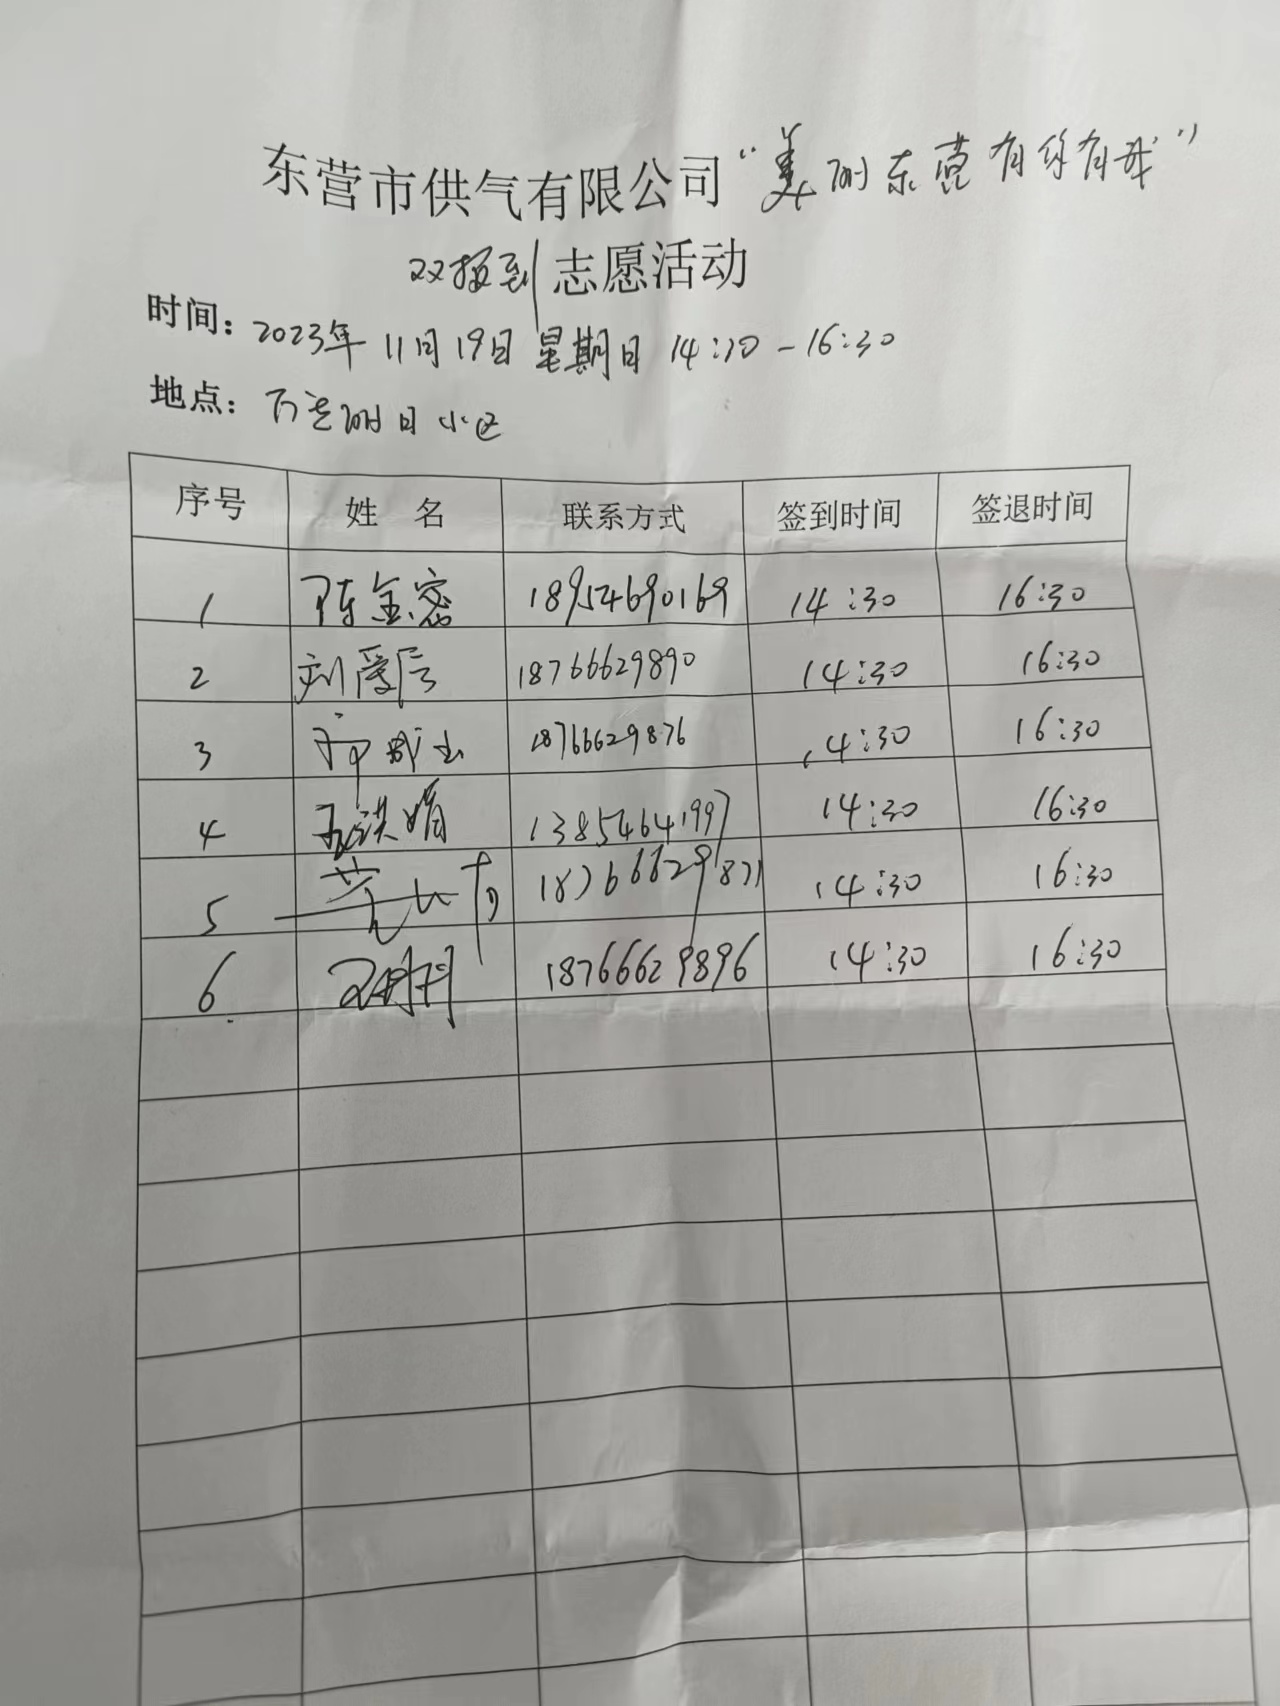 东营市供气有限公司“美丽东营有你有我”
双报到志愿活动
时间：2023年11月19日 星期日 14:30-16:30
地点：万达明日小区
序号 姓 名 联系方式 签到时间 签退时间
1 陈金密 18954690169 14:30 16:30
2 刘爱信 18766629890 14:30 16:30
3 18766629876 14:30 16:30
4 孟洪娟 13854641997 14:30 16:30
5 18766629871 14:30 16:30
6 18766629896 14:30 16:30